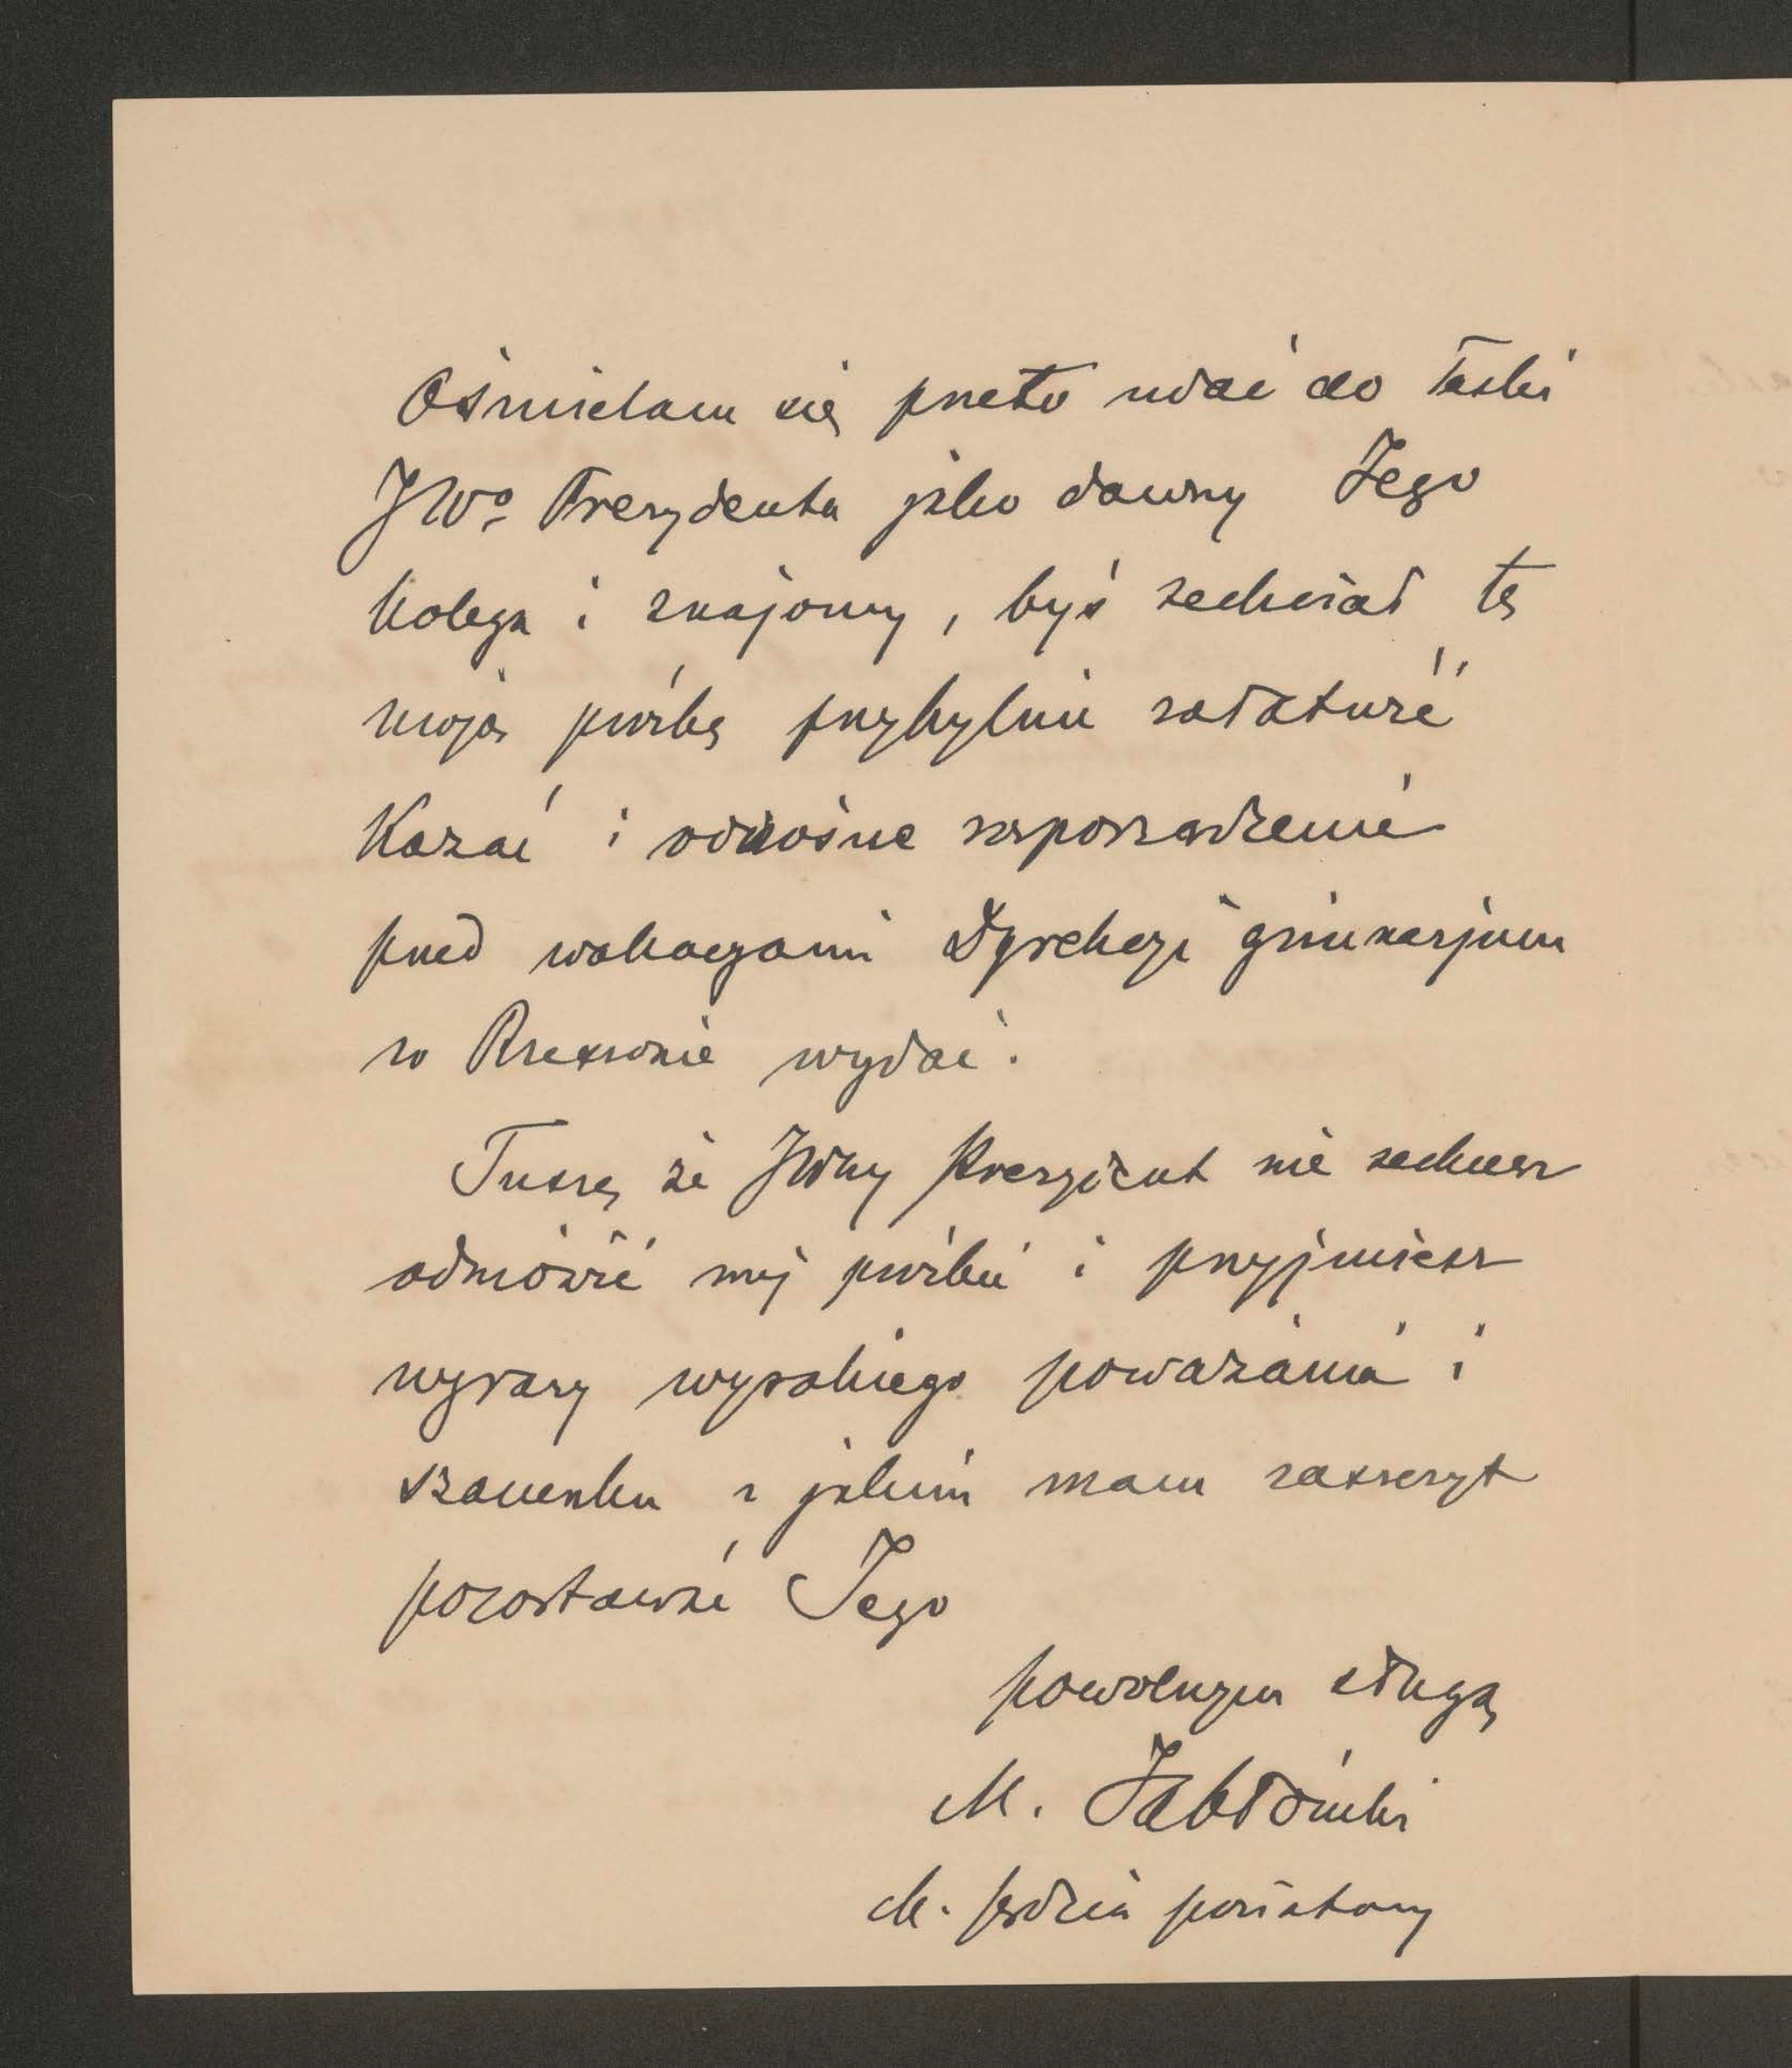 Ośmielam się przeto udać do łaski
JWo Prezydenta jako dawny Jego
kolega i znajomy, byś zechciał tę
moją prośbę przychylnie załatwić
kazać i odnośne rozporządzenie
przed wakacyami Dyrekcyi gimnazjum
w Rzeszowie wydać.
Tuszę, że JWny Prezydent nie zechcesz
odmówić mej prośbie i przyjmiesz
wyrazy wysokiego poważania i
szacunku z jakim mam zaszczyt
pozostawać Jego
powolnym sługą
M. Jabłoński
sędzia powiatowy